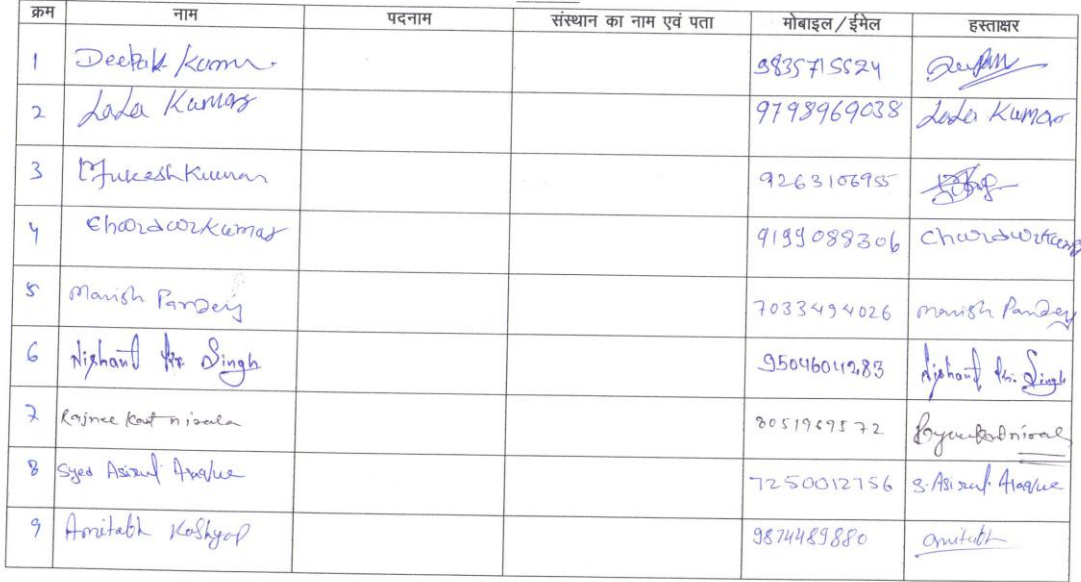 क्रम नाम पदनाम संस्थान का नाम एवं पता मोबाइल/ईमेल हस्ताक्षर
1 Deepak Kumar. 9835715524
2 Lala Kumar 9798969038 Lala Kumar
3 Mukesh Kumar 9263106955
4 Chandan Kumar 9199088306
5 Manish Pandey 7033494026 Manish Pandey
6 Nishant Kr. Singh 9504601283 Nishant Kr. Singh
7 Rajnee Kant 8051969572
8 Syed Asirul 7250012756 S. Asirul
9 Amitabh Kashyap 9874489880 Amitabh